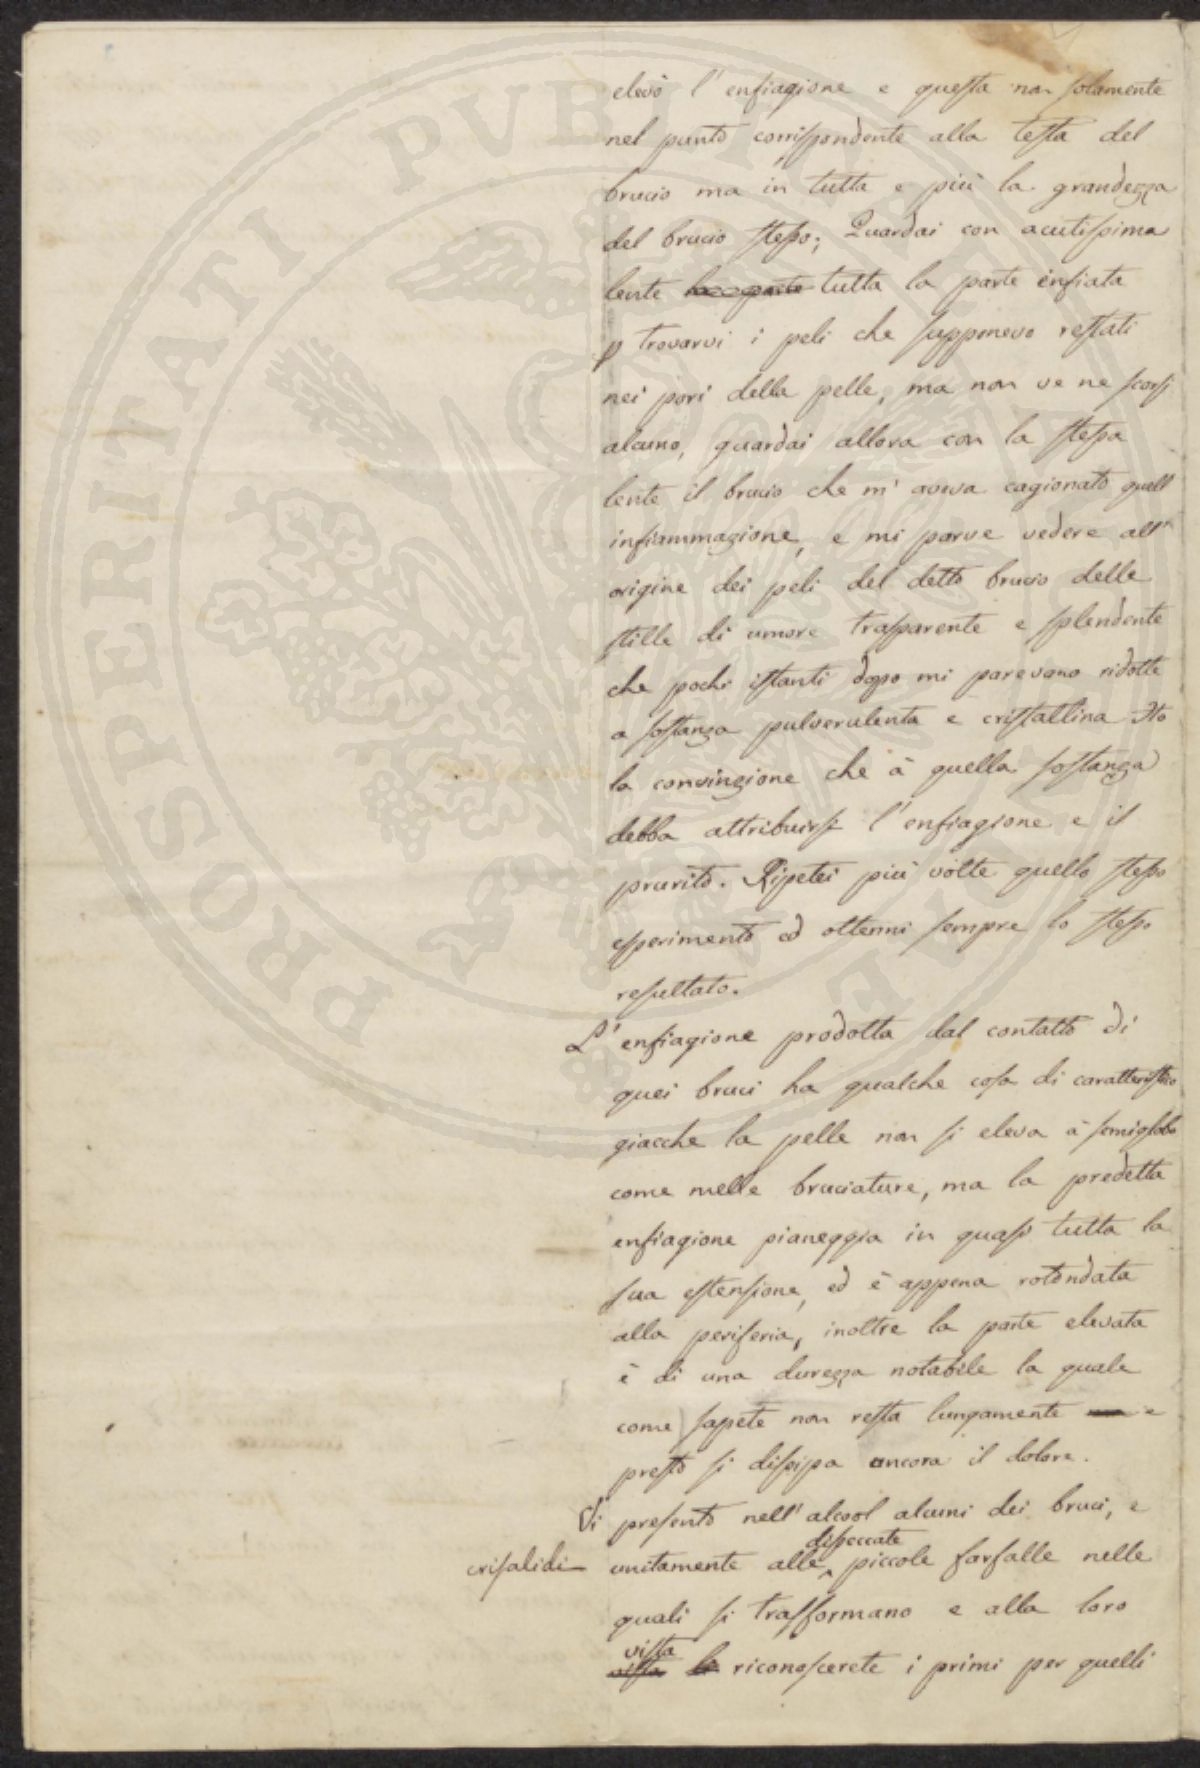 elevò l'enfiagione e questa non solamente
nel punto corrispondente alla testa del
brucio ma in tutta e più la grandezza
del brucio stesso; Guardai con acutissima
lente la parte tutta la parte enfiata
p trovarvi i peli che supponevo restati
nei pori della pelle, ma non ve ne scorsi
alcuno, guardai allora con la stessa
lente il brucio che m'aveva cagionato quell'
infiammazione, e mi parve vedere all'
origine dei peli del detto brucio delle
stille di umore trasparente e splendente
che pochi istanti dopo mi parevano ridotte
a sostanza pulverulenta e cristallina Ho
la convinzione che à quella sostanza
debba attribuirsi l'enfiagione e il
prurito. Ripetei più volte quello stesso
esperimento ed ottenni sempre lo stesso
resultato.
L'enfiagione prodotta dal contatto di
quei bruci ha qualche cosa di caratteristico
giacche la pelle non si eleva à semiglobo
come nelle bruciature, ma la predetta
enfiagione pianeggia in quasi tutta la
sua estensione, ed è appena rotondata
alla periferia, inoltre la parte elevata
è di una durezza notabile la quale
come sapete non resta lungamente e
presto si dissipa ancora il dolore.
Vi presento nell'alcool alcuni dei bruci, e
disseccate
crisalidi unitamente alle piccole farfalle nelle
quali si trasformano e alla loro
vista
vista riconoscerete i primi per quelli
PROSPERITATI PUBLICAE AUGENDAE